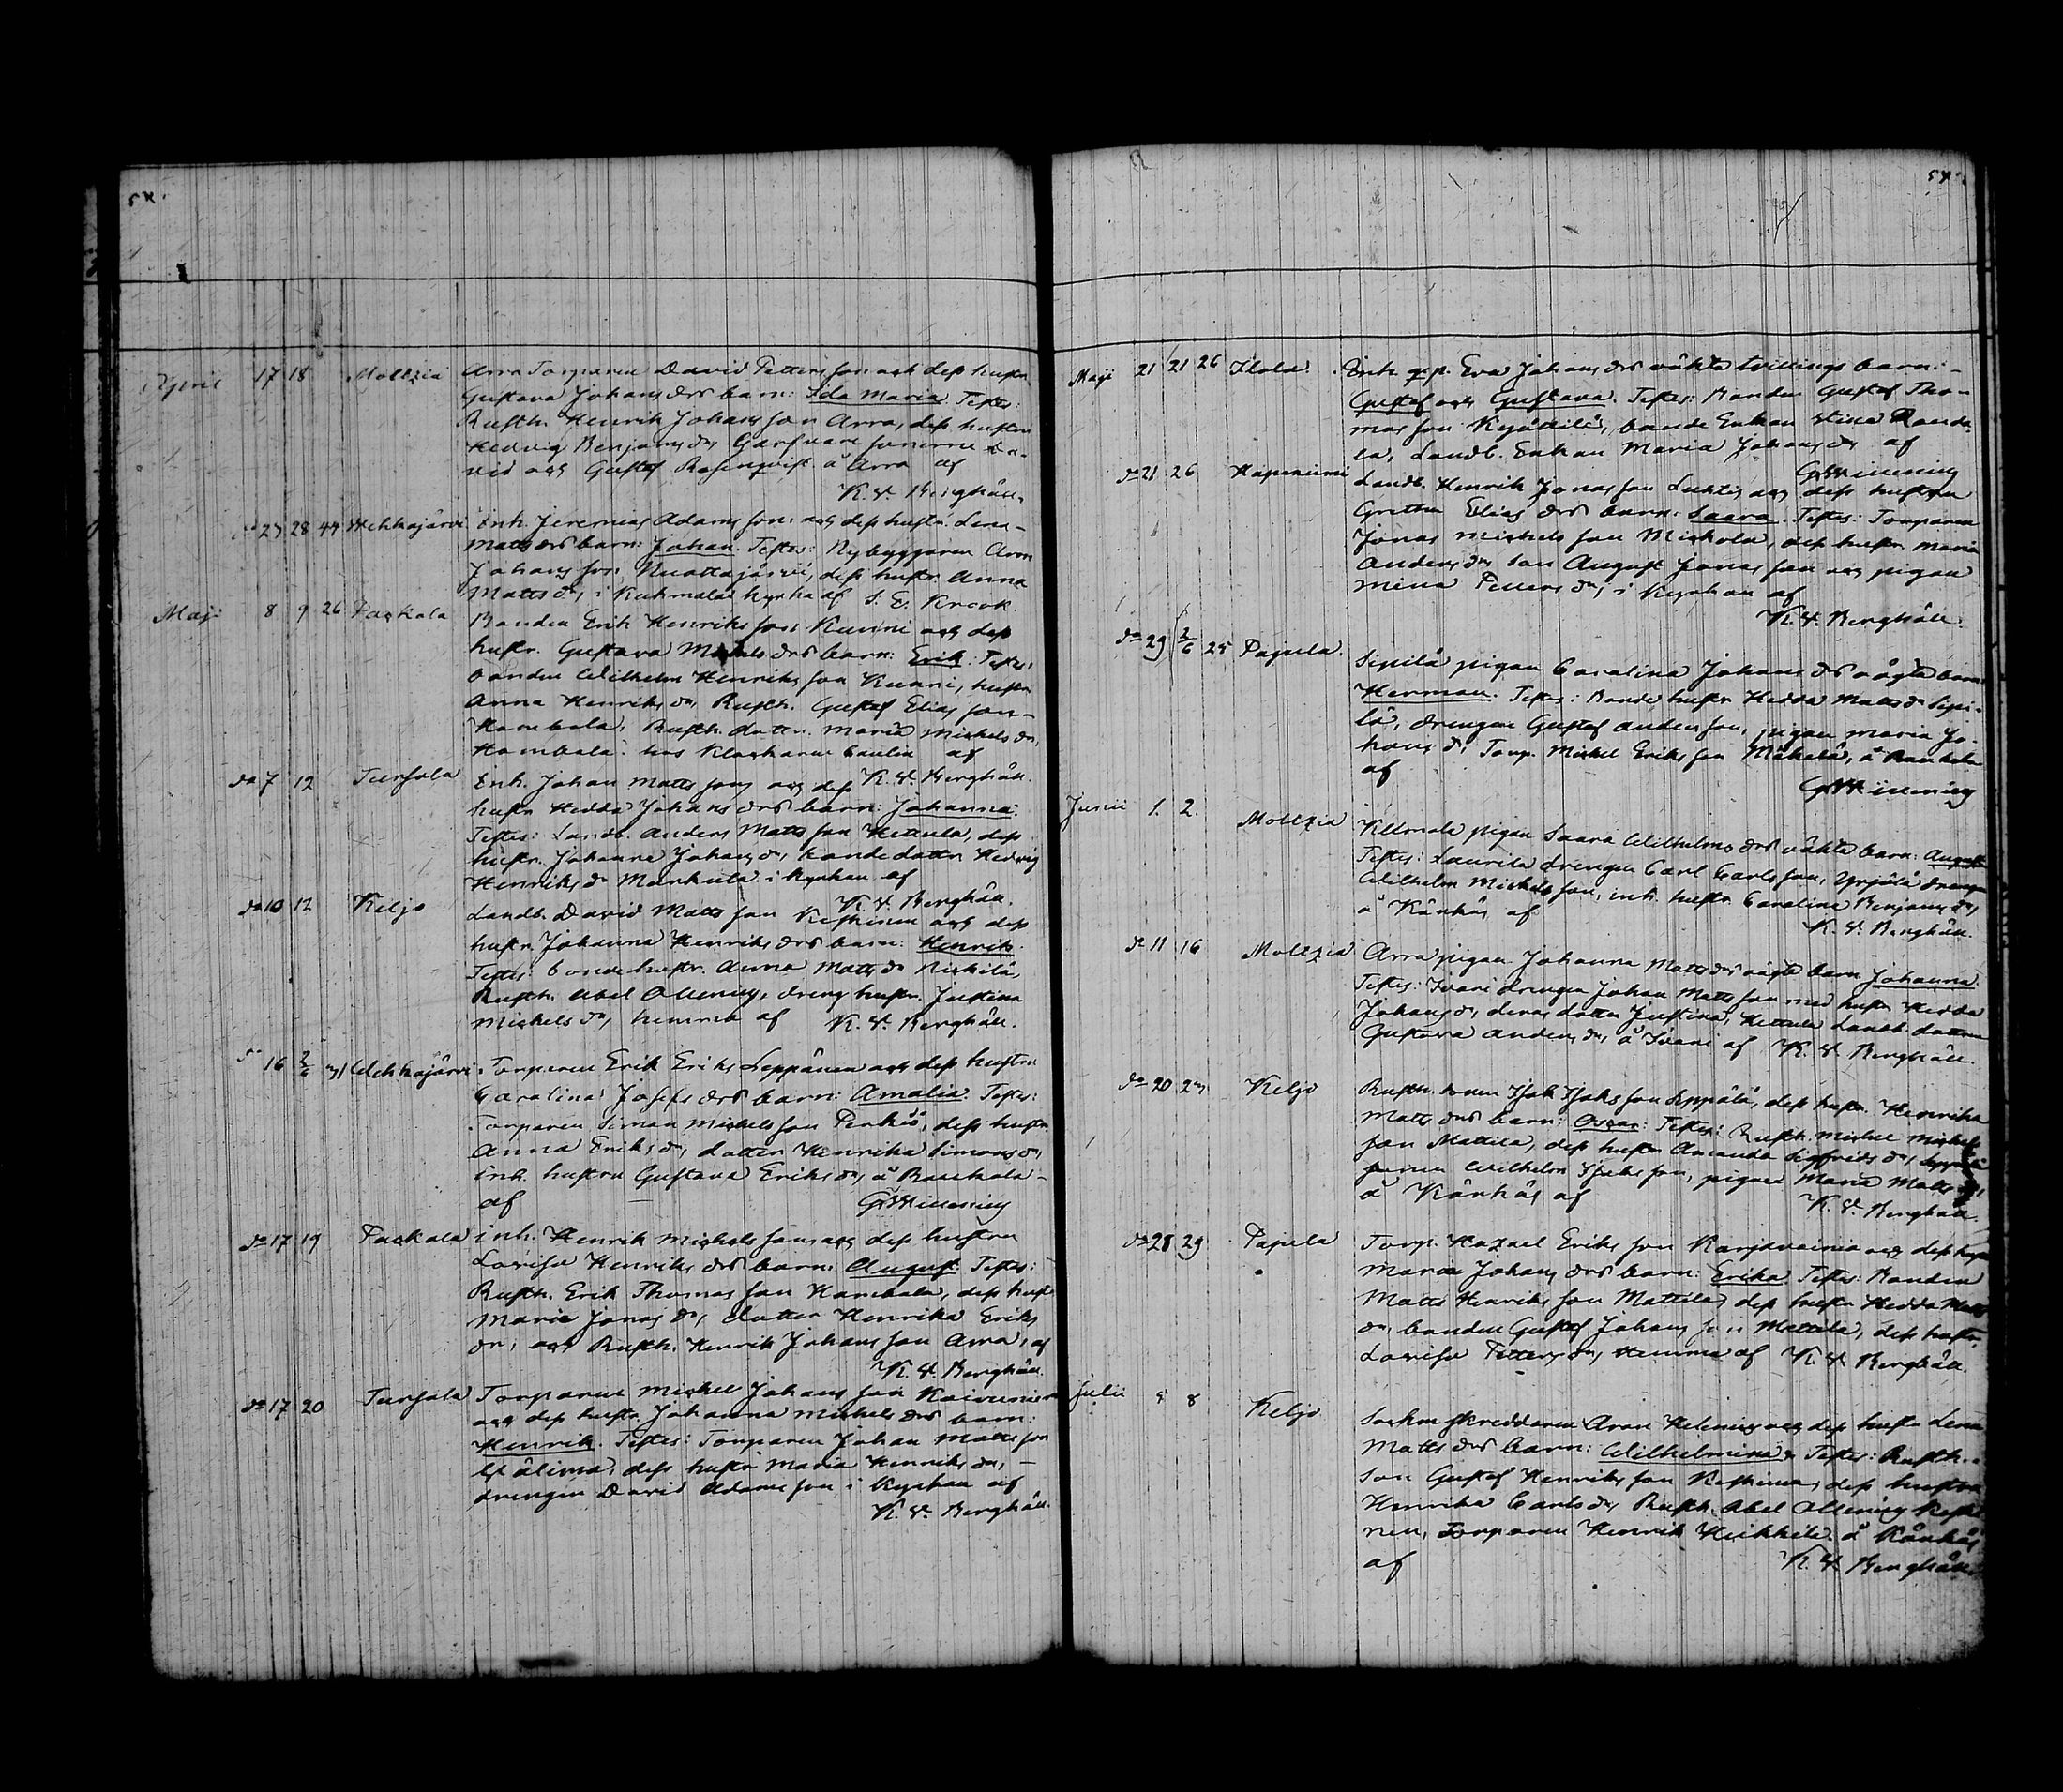 54.
April 17 18 Moltzia Arra Torparen David Petters son och dess hustru
Gustava Johans drs barn: Ida Maria. Testes:
Rusth. Henrik Johans son Arra, dess hustru
Hedvig Benjams dr, sönerne Da-
vid och Gustaf Rosenqvist å Arra af
K. V. Berghäll.
do 27 28 44 Wehkajärvi Inh. Jeremias Adams son och dess hustr. Lena
Matts drs barn: Johan. Testes: Nybyggaren Aron
Johans son Ruottajärvi, dess hustr. Anna
Matts dr, i Kuhmalax kyrka af S. E. Krook
Maji 8 9 26 Paskala Bonden Erik Henriks son Kuvni och dess
hustr. Gustava Michels drs barn: Erik. Testes:
bonden Wilhelm Henriks son Kunni, hustru
Anna Henriks dr, Rusth. Gustaf Elias son
Hambala, Rusth. dottr. Maria Michels dr,
Hambala. hos Klockaren Caulin af
K. V. Berghäll.
do 7 12 Tursola Inh. Johan Matts son och dess
hustru Hedda Johans drs barn: Johanna.
Testes: Landb. Anders Matts son Hettula, dess
hustr. Johanna Johans dr, bondedottr Hedvig
Henriks dr Markula i kyrkan af
K. V. Berghäll.
do 10 12 Keljo Landb. David Matts son Keskinen och dess
hustr. Johanna Henriks drs barn: Henrik.
Testes: bondehustr. Anna Matts dr Nickilä,
Rusth. Abel Ollenius, dreng hustru Justina
Michels dr, hemma af K. V. Berghäll.
do 16 2/6 31 Wehkajärvi Torparen Erik Eriks Leppänen och dess hustru
Carolina Josefs drs barn: Amalia. Testes:
Torparen Simon Michels son Penkiö, dess hustru
Anna Eriks dr, dotter Henrika Simons dr,
inh. hustru Gustava Eriks dr, å Rauhala
af
do 17 19 Paskala inh. Henrik Michels son och dess hustru
Lovisa Henriks drs barn: August. Testes:
Rusth. Erik Thomas son Hambala, dess hustr
Maria Jonas dr, dotter Henrika Eriks
dr, och Rusth. Henrik Johans son Arra, af
K. V. Berghäll.
do 17 20 Tursola Torparen Michel Johans son
och dess hustr. Johanna Michels drs barn:
Henrik. Testes: Torparen Johan Matts son
Wälimä, dess hustr Maria Henriks dr,
drengen David Adams son i kyrkan af
K. V. Berghäll.
54.
Maji 21 21 26 Ilola Enk. Eva Johans drs oäkta tvillings barn:
Gustaf och Gustava. Testes: Bonden Gustaf Tho-
mas son, bonde Enkan Stina
Landb. Enkan Maria Johans dr af
do 21 26 Haponiemi Landb. Henrik Jonas son Luhtis och dess hustru
Gretha Elias drs barn: Saara. Testes: Torparen
Jonas Michels son Mickola, dess hustr. Maria
Anders dr, son August Jonas son och pigan
Mina Petters dr, i Kyrkan af
K. V. Berghäll.
do 29 2/6 25 Pajula Sipilä pigan Carolina Johans drs oägta barn:
Herman. Testes: Bonde hustr Hedda Matts dr Sipi-
lä, drengen Gustaf Anders son, pigan Maria Jo-
hans dr, Torp. Michel Eriks son Mäkelä, å Rauhala
af
Junii 1. 2. Moltzia pigan Saara Wilhelms drs oäkta barn: August
Testes: Laurila drengen Carl Carls son, Yrjölä drengen
Wilhelm Michels son, inh. hustr Carolina Benjams dr,
å Känkäs af
K. V. Berghäll.
do 11 16 Moltzia Arra pigan Johanna Matts drs oägta barn Johanna.
Testes: Iivari drengen Johan Matts son med hustr Hedda
Johans dr, deras dotter Justina, Hettula Landb. dottren
Gustava Anders dr, å Iivari af K. V. Berghäll.
do 20 23 Keljo Rusth. sonen Isak Isaks son Seppälä, dess hustr. Henrika
Matts drs barn: Oscar. Testes: Rusth. Michel Michels
son Mattila, dess hustr Amanda Sigfrids dr,
Wilhelm Isaks son, pigan Maria Matts dr,
å Känkäs af
K. V. Berghäll.
do 28 29 Pajula Torp. Hazael Eriks son Karjavainio och dess hustr
Maria Johans drs barn: Erika. Testes: Bonden
Matts Henriks son Mattila, dess hustr Hedda Matts
dr, bonden Gustaf Johans son Mattila, dess hustr
Lovisa Petters dr, hemma af K. V. Berghäll.
Julii 5 8 Keljo Sockne skreddaren Aron Helenius och dess hustr Lena
Matts drs barn: Wilhelmina. Testes: Rusth.
son Gustaf Henriks son Keskinen, dess hustru
Henrika Carls dr, Rusth. Abel Ollenius Keski-
nen, Torparen Henrik Heikkilä å Känkäs
af K. V. Berghäll.